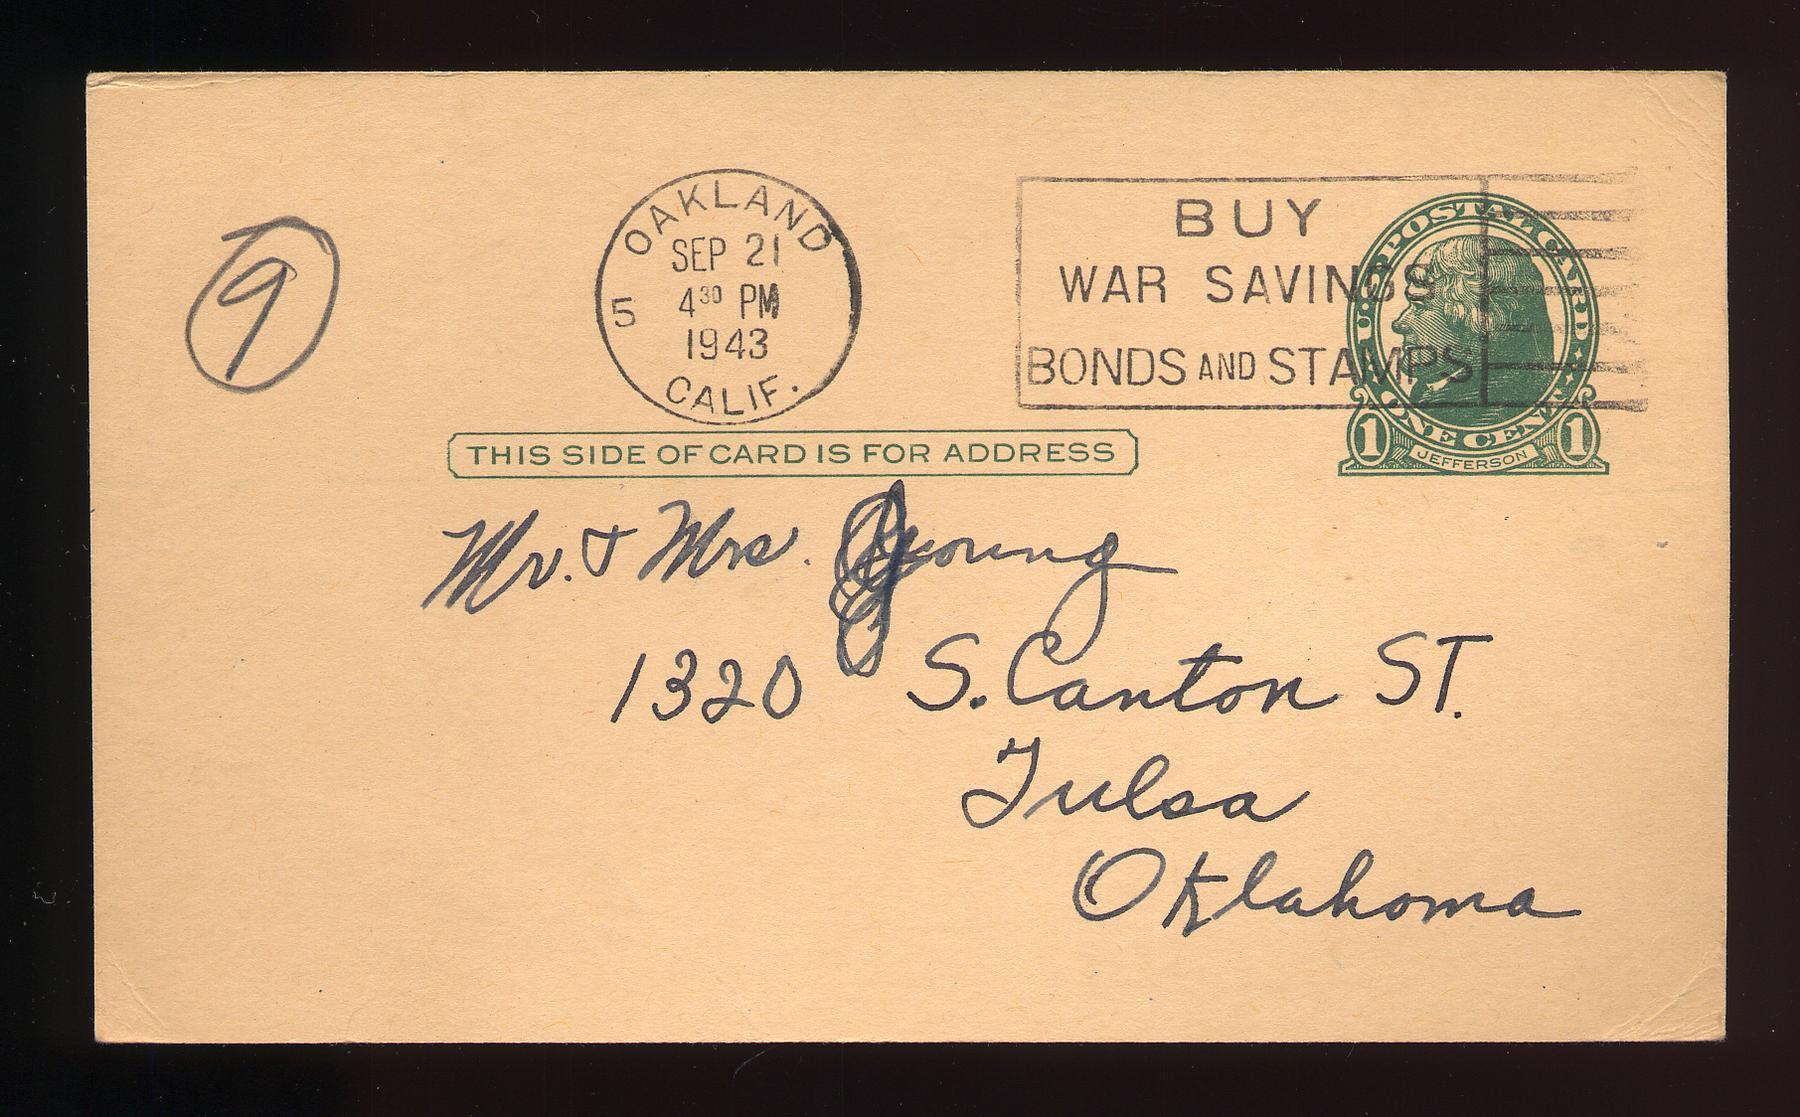 9
OAKLAND
SEP 21
4³⁰ PM
5
1943
CALIF.
BUY
WAR SAVINGS
BONDS AND STAMPS
U.S. POSTAL CARD
ONE CENT
1 JEFFERSON 1
THIS SIDE OF CARD IS FOR ADDRESS
Mr. & Mrs. Young
1320 S. Canton ST.
Tulsa
Oklahoma